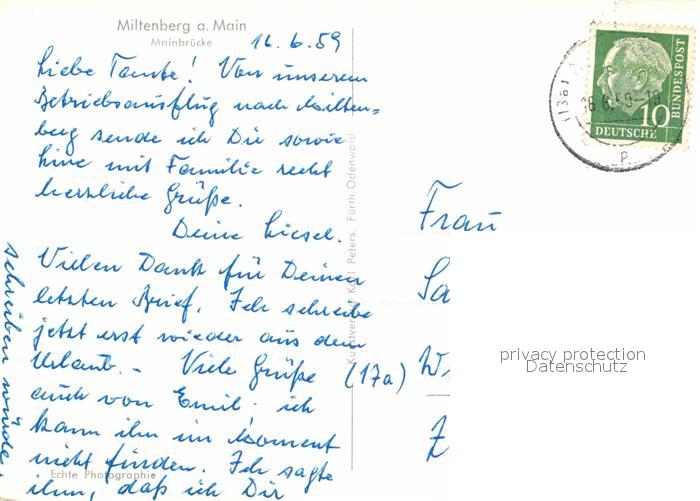 Miltenberg a. Main
Mainbrücke
16.6.59
Liebe Tante! Von unserem
Betriebsausflug nach Milten=
berg sende ich Dir sowie
Line mit Familie recht
herzliche Grüße.
Deine Liesel.
Vielen Dank für Deinen
letzten Brief. Ich schreibe
jetzt erst wieder aus dem
Urlaub. - Viele Grüße
auch von Emil; ich
kann ihn im Moment
nicht finden. Ich sagte
ihm, daß ich Dir
schreiben würde.
Echte Photographie
Kunstverlag Karl Peters, Fürth Odenwald
10
DEUTSCHE
BUNDESPOST
16.6.59-19
Frau
Sa
W
(17a)
Z
privacy protection
Datenschutz